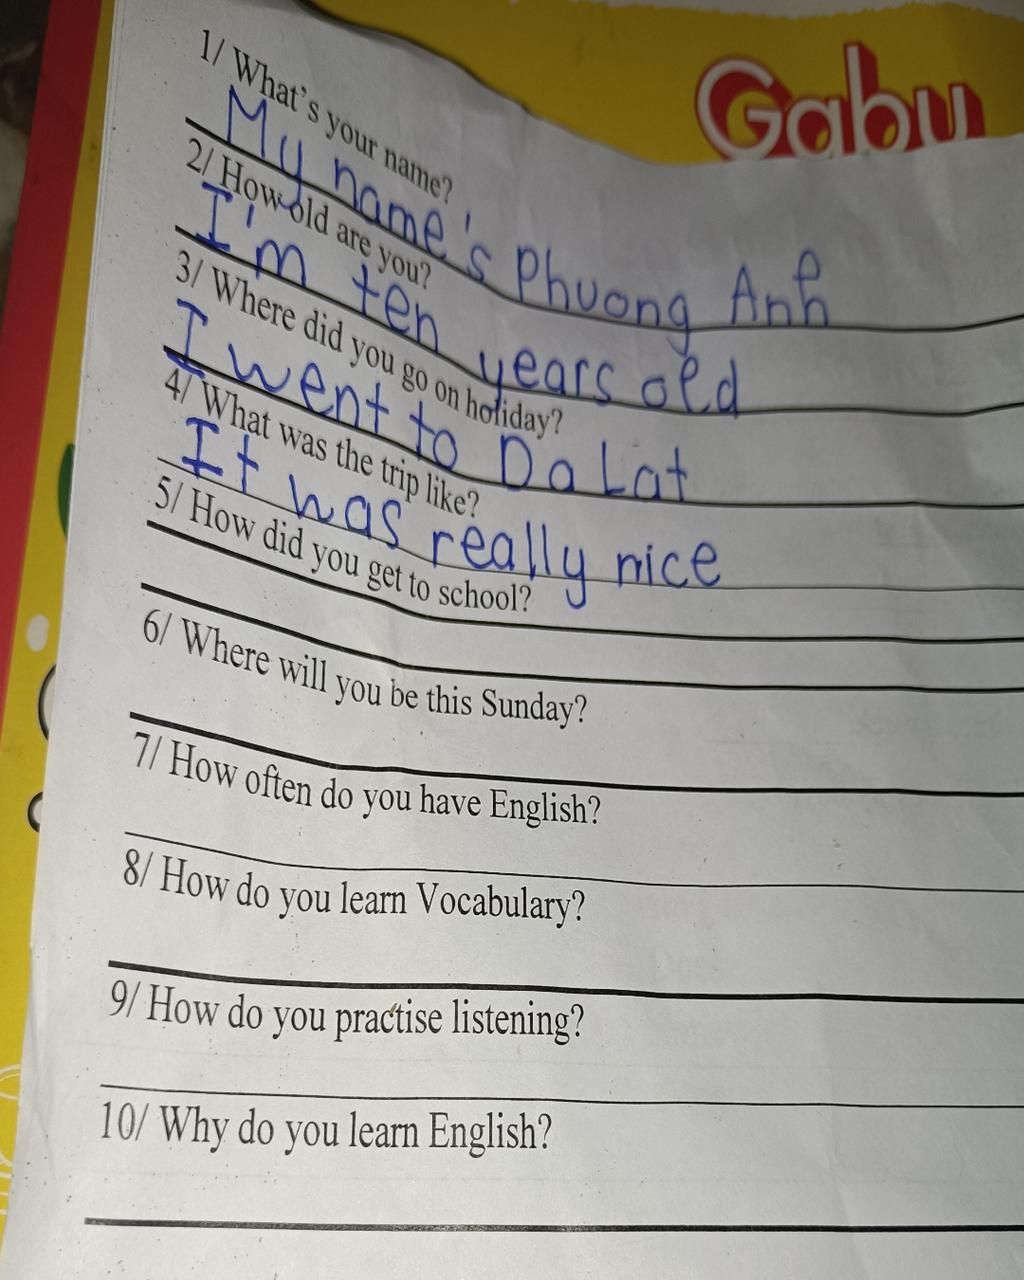 Gabu
1/ What's your name?
My name's Phuong Anh
2/ How old are you?
I'm ten years old
3/ Where did you go on holiday?
I went to Da Lat
4/ What was the trip like?
It was really nice
5/ How did you get to school?
6/ Where will you be this Sunday?
7/ How often do you have English?
8/ How do you learn Vocabulary?
9/ How do you practise listening?
10/ Why do you learn English?